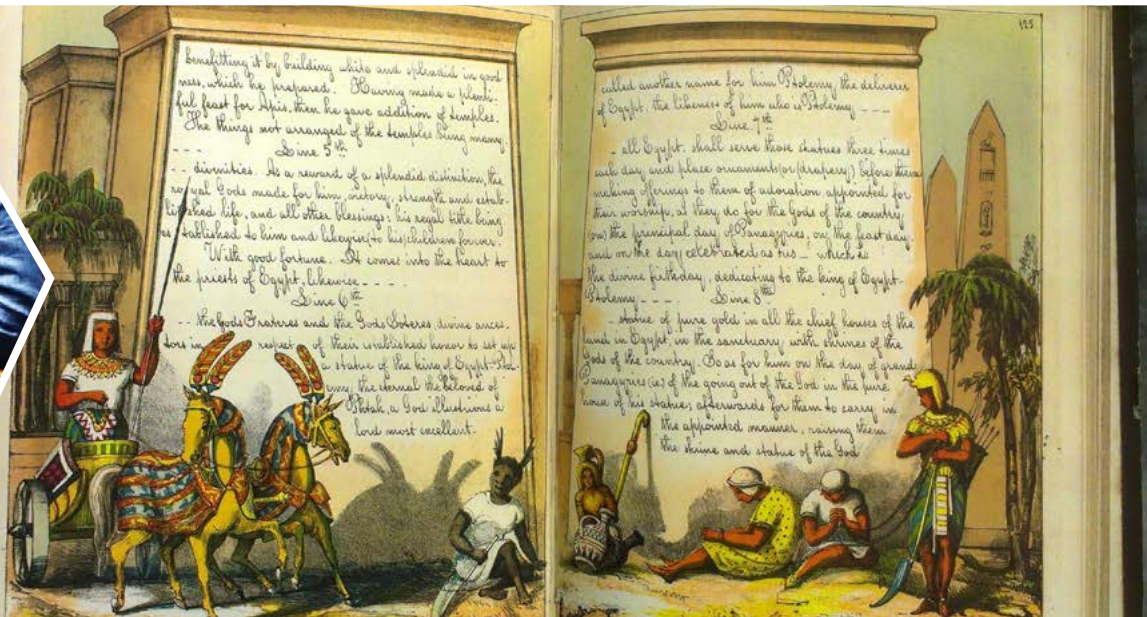 benefitting it by building white and splendid in good
ness, which he prepared. Having made a plenti-
ful feast for Apis, then he gave addition of temples.
The things not arranged of the temples being many,
- - - - Line 5th
- - divinities. As a reward of a splendid distinction, the
royal Gods made for him, victory, strength and estab-
lished life, and all other blessings: his regal title being
established to him and likewise (to his) children forever.
With good fortune. It comes into the heart to
the priests of Egypt, likewise - - - - -
Line 6th
- - the Gods Frateres and the Gods Soteres, divine ances-
tors in respect of their established honor to set up
a statue of the king of Egypt-Ptol-
emy, the eternal the beloved of
Phtah, a God illustrious a
lord most excellent.
125
called another name for him Ptolemy the deliverer
of Egypt. the likeness of him also is Ptolemy - - - -
Line 7th
- all Egypt. shall serve those statues three times
each day, and place ornaments (or (drapery) before them
making offerings to them of adoration appointed for
their worship, as they do for the Gods of the country
(on) the principal day, of Panagyries, on the feast day.
and on the day celebrated as his - which is
the divine birthday, dedicating to the king of Egypt-
Ptolemy - - - - Line 8th
- statue of pure gold in all the chief houses of the
land in Egypt, in the sanctuary with shrines of the
Gods of the country. So as for him on the day of grand
Panagyries (is) of the going out of the God in the pure
house of his statue, afterwards for them to carry in
the appointed manner, raising them
the shrine and statue of the God